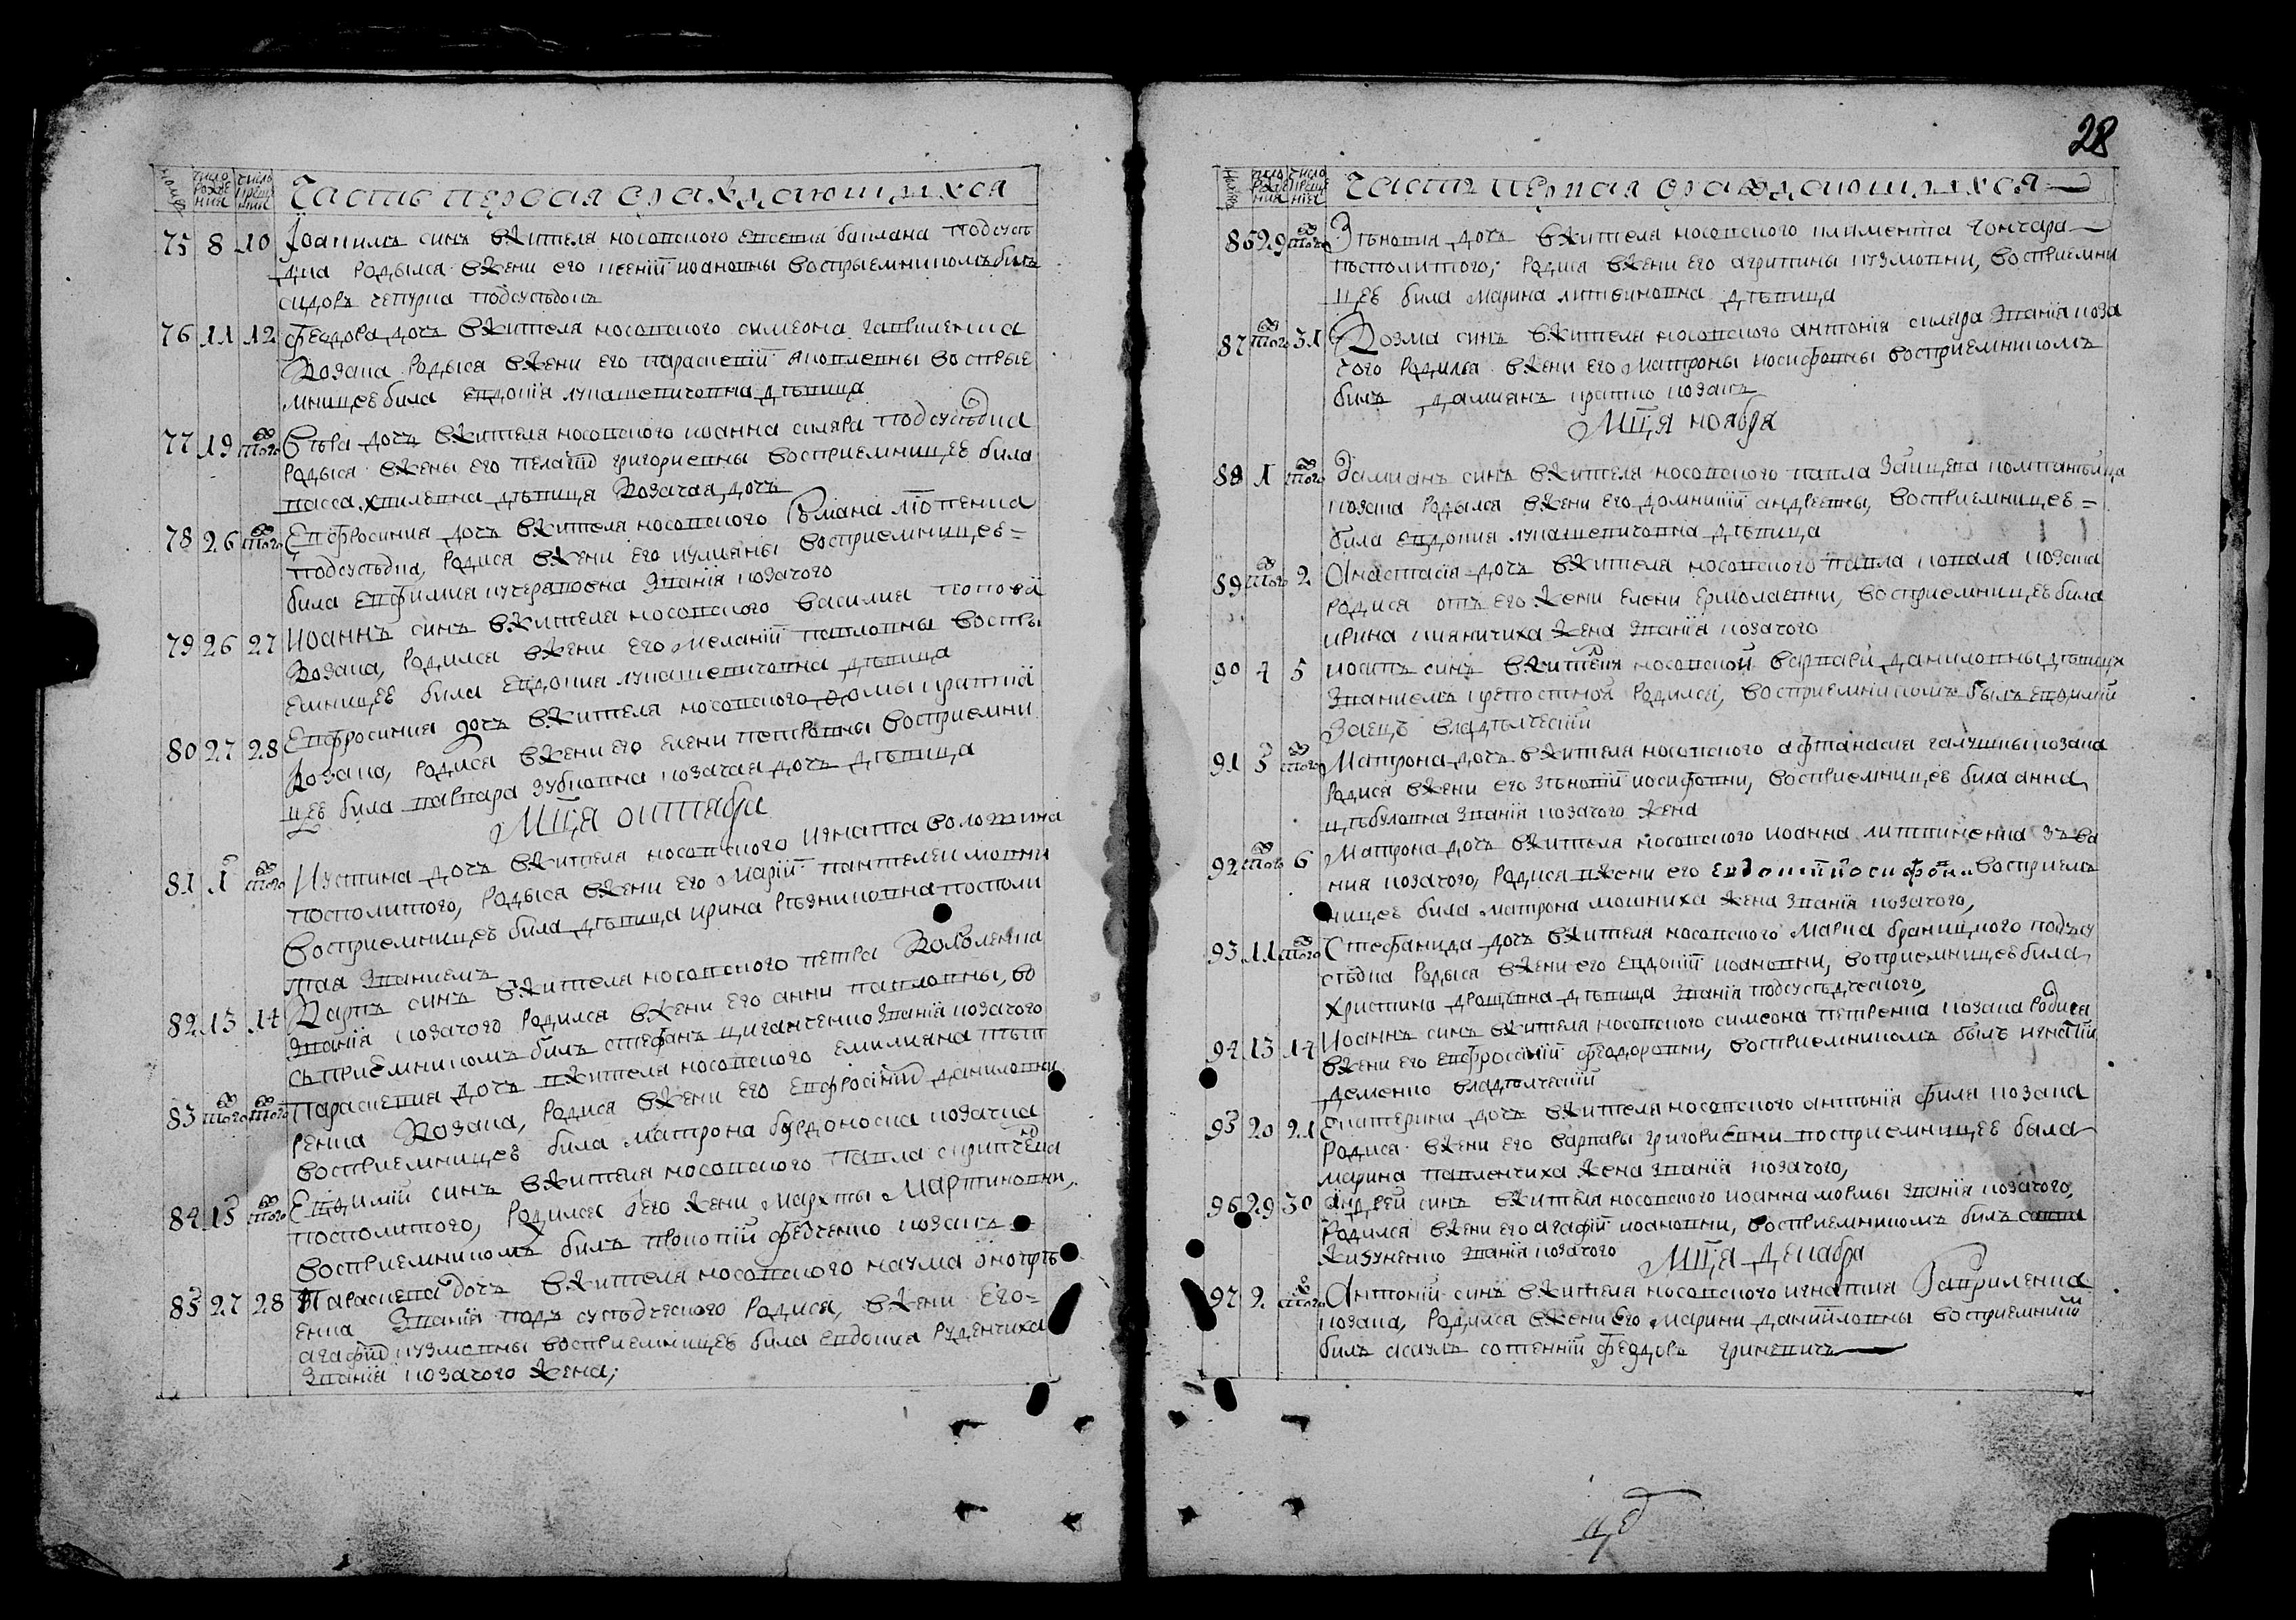 номеръ число рожденія число крещенія Часть первая о раждающихся
75 8 10 Іоакимъ синъ вжителя носовского евсевия баклана подсусѣ
дка родылся вжени его ксеніи иоановны воспрыемникомъ былъ
сидоръ чепурка подсусѣдокъ
76 11 12 феодора дочь вжителя носовского симеона гавриленка
козака родыса вжени его параскевіи яковлевны воспрые
мницеѣ била евдокія лукашевичовна дѣвица
77 19 того Вѣра дочь вжителя носовского иоанна скляра подсусѣдка
родыся вжены его пелагіи григориевны восприемницеѣ била
васса дѣвица козачая дочь
78 26 того Евфросиния дочь вжителя носовского романа
подсусѣдка, родися вжени его иулияны восприемницеѣ=
била евфимия кучеряповна званія козачого
79 26 27 иоаннъ синъ вжителя носовского василия
козака, родился вжени его меланіи павловны воспры
емницеѣ била евдокия лукашевичовна дѣвица
80 27 28 Евфросиния дочь вжителя носовского домы
козака, родися вжени его елени петровны восприемни
цеѣ била варвара зубковна козачая дочь дѣвица
Мця октября
81 1 того Иустина дочь вжителя носовского игната волошина
посполитого, родыся вжени его маріи пантелеимовни
восприемницеѣ била дѣвица ирина рѣзниковна посполи
тая званиемъ
82 13 14 Карпъ синъ вжителя носовского петра
званія козачого родился вжени его анни павловны, во
сприемникомъ билъ стефанъ циганченко званія козачого
83 того того Параскевия дочь вжителя носовского емилияна
ренка козака, родися вжени его евфросініи даниловни
восприемницеѣ била матрона бурдоноска козачка
84 15 того Евдимій синъ вжителя носовского павла скрипченка
посполитого, родился его жени мархвы мартиновни,
восприемникомъ билъ прокопій федченко козакъ
85 27 28 Параскева дочь вжителя носовского наума оноприѣ
енка званія подъ сусѣдческого родися, вжени его=
агафіи кузмовны восприемницеѣ била евдокия руденчиха
званія козачого жена;
28
номеръ число рожденія число крещенія часть первая о раждающихся
86 29 того Зѣновия дочь вжителя носовского климента гончара
посполитого; родися вжени его агрипины кузмовни, восприемни
цеѣ била марина литвиновна дѣвица
87 того 31 Козма синъ вжителя носовского антонія скляра званія коза
чого родился вжени его матроны иосифовны восприемникомъ
билъ дамиянъ кравко козакъ
Мця ноября
88 1 того Дамианъ синъ вжителя носовского павла заицева компанѣйца
козака родылся вжени его домникіи андреевны, восприемницеѣ=
била евдокия лукашевичовна дѣвица
89 того 2 Анастасія дочь вжителя носовского павла коваля козака
родися отъ его жени елени ермолаевни, восприемницеѣ била
ирина кияничиха жена званія козачого
90 4 5 иоаннъ синъ вжителки носовской варвари даниловны дѣвици
званиемъ крепостной родился, восприемникомъ былъ евдимій
заецъ владѣлческій
91 5 того Матрона дочь вжителя носовского афтанасия галушки козака
родися вжени его зѣновіи иосифовни, восприемницеѣ била анна
цѣбуловна званія козачого жена
92 того 6 Матрона дочь вжителя носовского иоанна литвиненка зъва
ния козачого, родися вжени его евдокіи иосифов.. восприем
ницеѣ била матрона мошниха жена званія козачого,
93 11 того Стефанида дочь вжителя носовского марка браницкого подъсу
сѣдка родыся вжени его евдокіи иоановни, воприемницеѣ била
христина дѣвица званія подсусѣдческого,
94 13 14 Иоаннъ синъ вжителя носовского симеона петренка козака родися
вжени его евфросініи феодоровни, восприемникомъ былъ игнатій
деменко владѣлческій
95 20 21 Екатерина дочь вжителя носовского антонія филя козака
родися вжени его варвары григориевни восприемницеѣ была
марина павленчиха жена званія козачого,
96 29 30 андрей синъ вжителя носовского иоанна мовмы званія козачого,
родился вжени его агафіи иоановни, восприемникомъ билъ савка
кизуненко званія козачого Мця декабря
97 2 того Антоній синъ вжителя носовского игнатия Гавриленка
козака, родился вжени его марини данійловны восприемникѡ
билъ асаулъ сотенній феодоръ гриневичъ